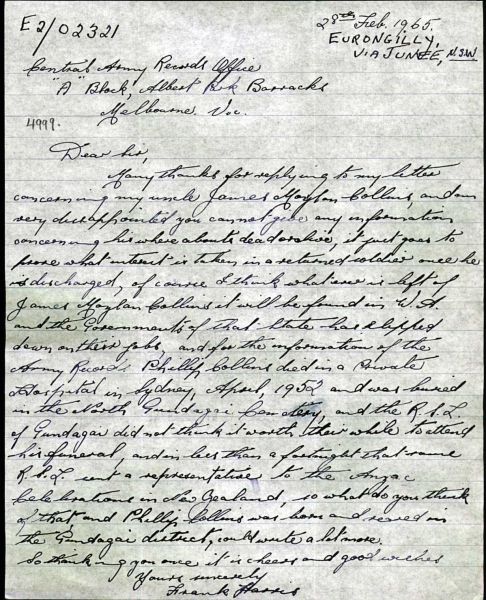 E2/02321
28th Feb. 1965.
EURONGILLY,
VIA JUNEE, N.S.W.
Central Army Records Office
"A" Block, Albert Park Barracks
Melbourne Vic.
4999.
Dear Sir,
Many thanks for replying to my letter
concerning my uncle James Moylan Collins, and am
very disappointed you cannot give any information
concerning his where abouts dead or alive, it just goes to
prove what interest is taken in a returned soldier once he
is discharged, of course I think what ever is left of
James Moylan Collins it will be found in W.A.
and the Governments of that State has slipped
down on their jobs, and for the information of the
Army Records Phillip Collins died in a Private
Hospital in Sydney, April, 1953 and was buried
in the North Gundagai Cemetery, and the R.S.L.
of Gundagai did not think it worth their while to attend
his funeral, and in less than a fortnight that same
R.S.L. sent a representative to the Anzac
Celebrations in New Zealand, so what do you think
of that, and Phillip Collins was born and reared in
the Gundagai district, could write a lot more.
So thanking you once it is cheers and good wishes
Yours sincerely
Frank Harris